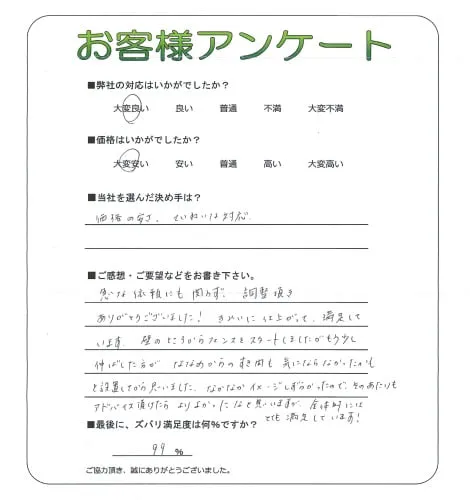 お客様アンケート
■弊社の対応はいかがでしたか?
大変良い 良い 普通 不満 大変不満
■価格はいかがでしたか?
大変安い 安い 普通 高い 大変高い
■当社を選んだ決め手は?
価格の安さ、ていねいな対応
■ご感想・ご要望などをお書き下さい。
急な依頼にも関わらず、調整頂き
ありがとうございました! きれいに仕上がって、満足して
います。壁のところからフェンスをスタートしましたがもう少し
伸ばした方が ななめからのすき間も 気にならなかったかも
と設置してから思いました。なかなかイメージしずらかったので、そのあたりも
アドバイス頂けたら よりよかったなと思いますが、全体的には
とても満足しています!
■最後に、ズバリ満足度は何%ですか?
99 %
ご協力頂き、誠にありがとうございました。